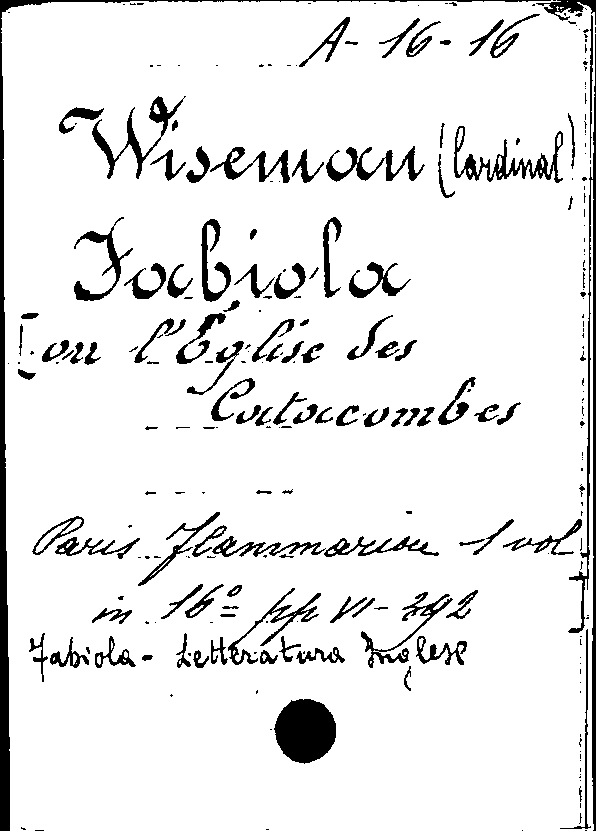 A-16-16
Wiseman (Cardinal)
Fabiola
[ou l'Église des
Catacombes
Paris Flammarion 1 vol
in 16° pp VI-392]
Fabiola - Letteratura Inglese